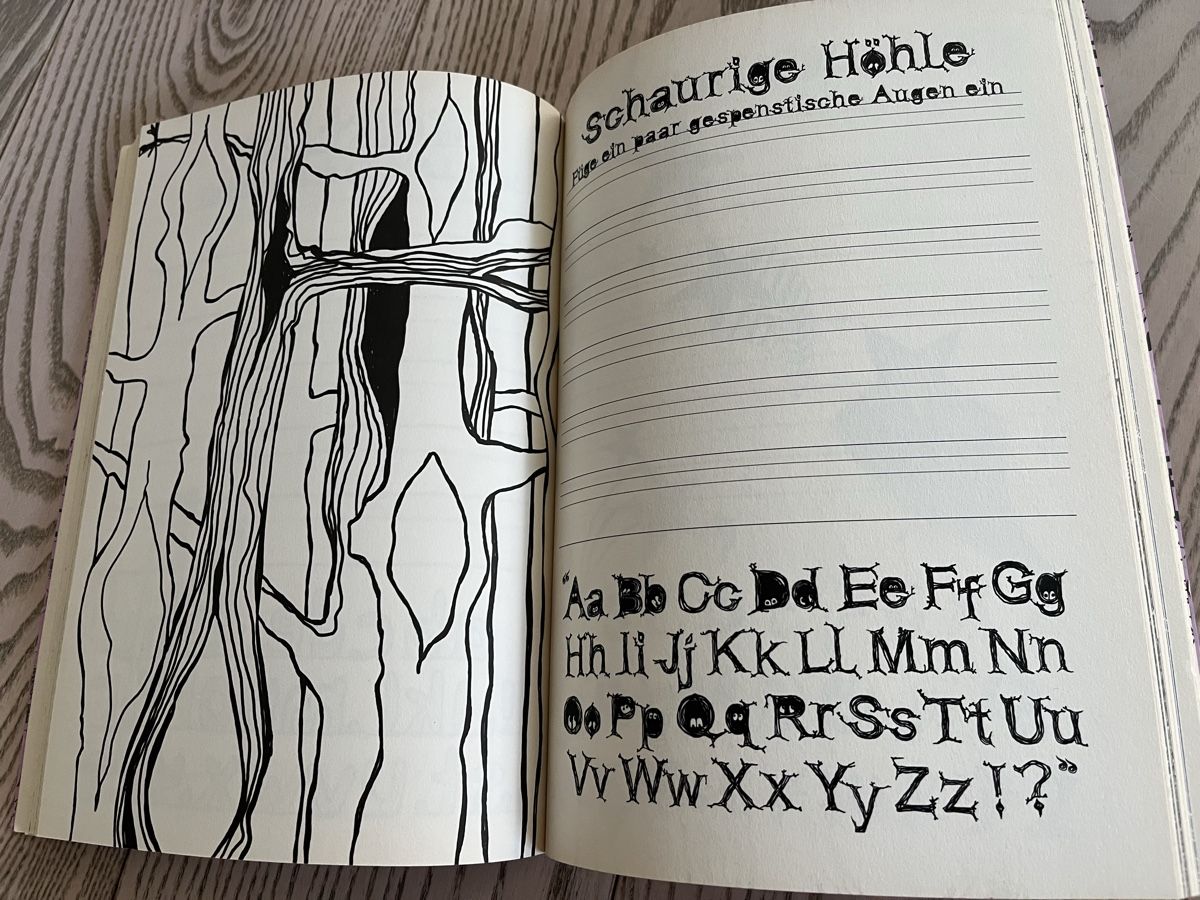 Schaurige Höhle
Füge ein paar gespenstische Augen ein
“Aa Bb Cc Dd Ee Ff Gg
Hh Ii Jj Kk Ll Mm Nn
Oo Pp Qq Rr Ss Tt Uu
Vv Ww Xx Yy Zz !?”